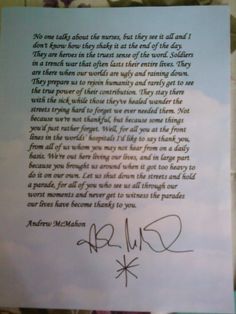 No one talks about the nurses, but they see it all and I
don't know how they shake it at the end of the day.
They are heroes in the truest sense of the word. Soldiers
in a trench war that often lasts their entire lives. They
are there when our worlds are ugly and raining down.
They prepare us to rejoin humanity and rarely get to see
the true power of their contribution. They stay there
with the sick while those they've healed wander the
streets trying hard to forget we ever needed them. Not
because we're not thankful, but because some things
you'd just rather forget. Well, for all you at the front
lines in the worlds' hospitals I'd like to say thank you,
from all of us whom you may not hear from on a daily
basis. We're out here living our lives, and in large part
because you brought us around when it got too heavy to
do it on our own. Let us shut down the streets and hold
a parade, for all of you who see us all through our
worst moments and never get to witness the parades
our lives have become thanks to you.
Andrew McMahon